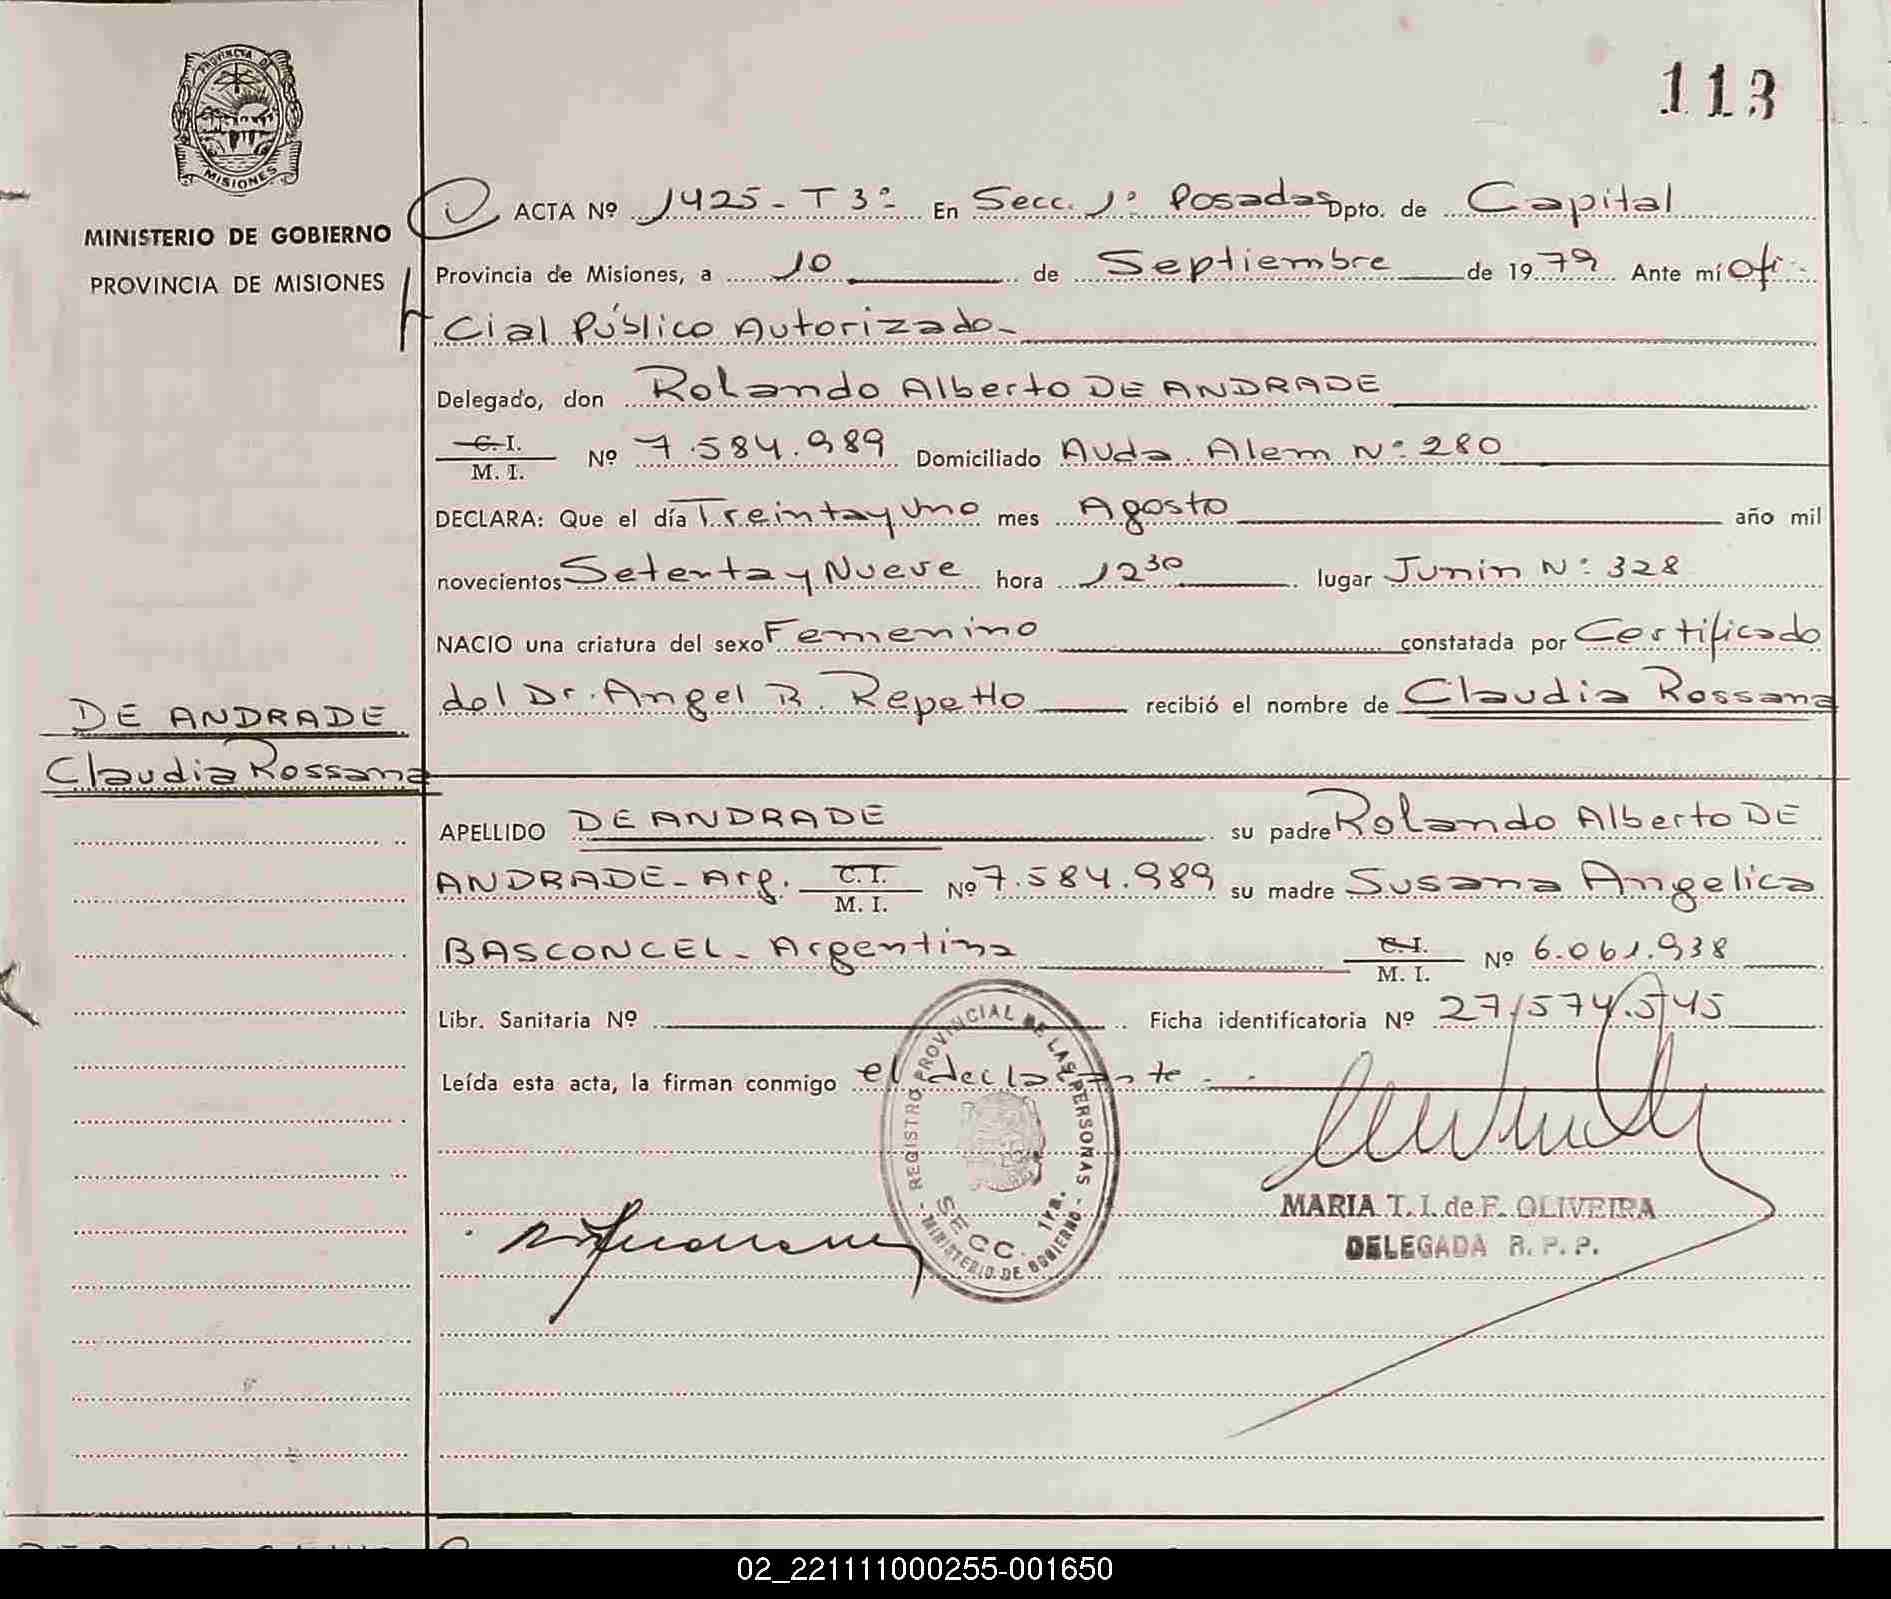 113
PROVINCIA DE
MISIONES
MINISTERIO DE GOBIERNO
PROVINCIA DE MISIONES
ACTA Nº 1425 - T 3º En Secc. 1º Posadas Dpto. de Capital
Provincia de Misiones, a 10 de Septiembre de 1979 Ante mí Ofi-
cial Público Autorizado-
Delegado, don Rolando Alberto DE ANDRADE
C. I.
M. I.
Nº 7.584.989 Domiciliado Avda. Alem Nº 280
DECLARA: Que el día Treinta y Uno mes Agosto año mil
novecientos Setenta y Nueve hora 12 30 lugar Junin Nº 328
NACIO una criatura del sexo Femenino constatada por Certificado
del Dr. Angel R. Repetto recibió el nombre de Claudia Rossana
DE ANDRADE
Claudia Rossana
APELLIDO DE ANDRADE su padre Rolando Alberto DE
ANDRADE - Arg. C. I. M. I. Nº 7.584.989 su madre Susana Angelica
BASCONCEL - Argentina C. I. M. I. Nº 6.061.938
Libr. Sanitaria Nº Ficha identificatoria Nº 27.574.545
Leída esta acta, la firman conmigo el declarante -
REGISTRO PROVINCIAL DE LAS PERSONAS
SECC. 1ra.
MINISTERIO DE GOBIERNO
MARIA T. I. de F. OLIVEIRA
DELEGADA R. P. P.
02_221111000255-001650